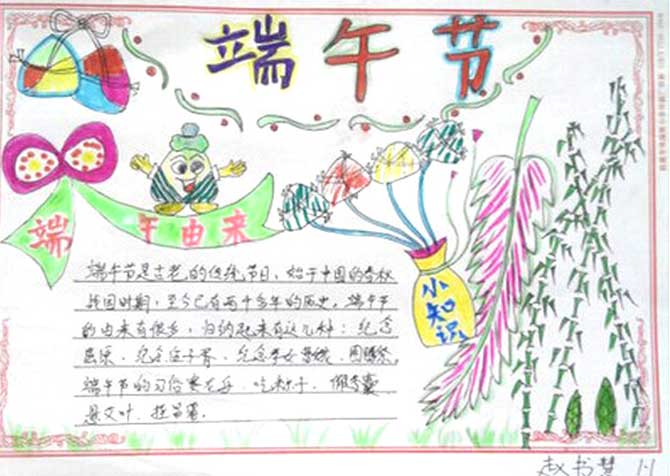 端午节
端午由来
小知识
端午节是古老的传统节日，始于中国的春秋
战国时期，至今已有两千多年的历史。端午节
的由来有很多，归纳起来有这几种：纪念
屈原、纪念伍子胥、纪念孝女曹娥、
端午节的习俗赛龙舟、吃粽子、佩香囊
悬艾叶、挂菖蒲.
赵书慧 1-1